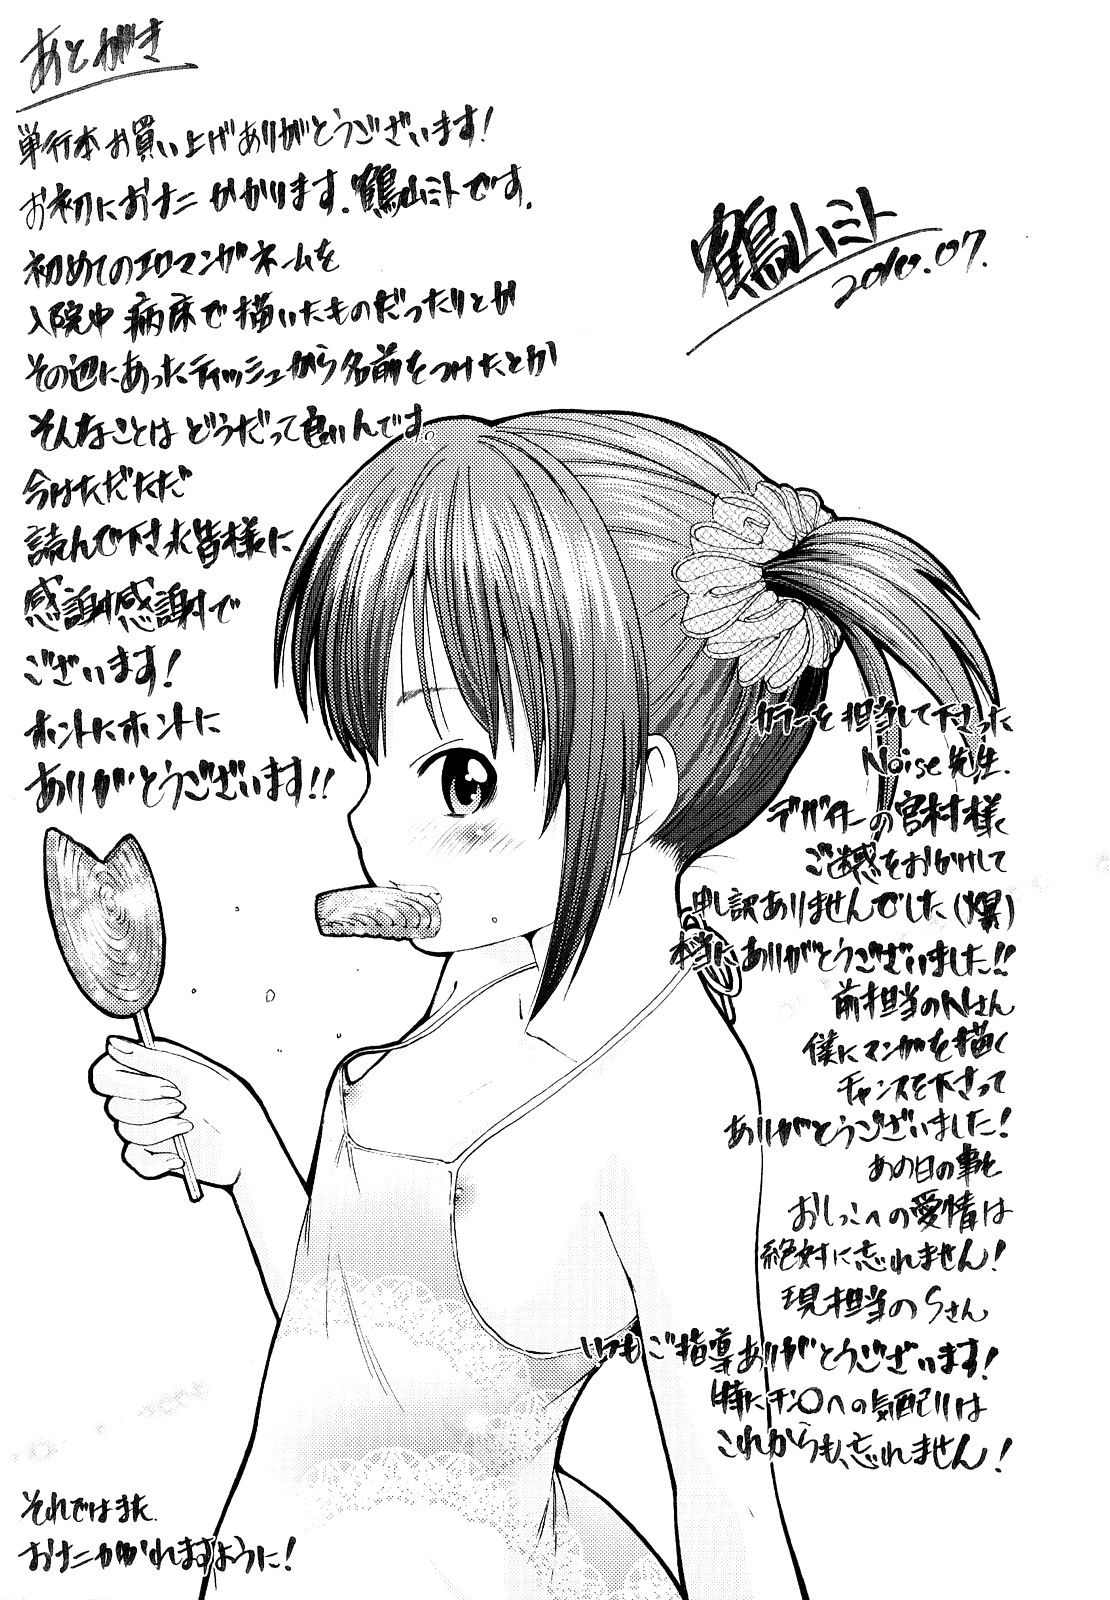 あとがき
単行本お買い上げありがとうございます!
お初におナニかかります.鶴山ミトです.
初めてのエロマンガネームを
入院中病床で描いたものだったりとか
その辺にあったティッシュから名前をつけたとか
そんなことはどうだって良いんです。
今はただただ
読んで下さる皆様に
感謝感謝で
ございます!
ホントにホントに
ありがとうございます!!
鶴山ミト
2010.07.
カラーを担当して下さった
Noise先生.
デザイナーの宮村様
ご迷惑をおかけして
申し訳ありませんでした(爆)
本当にありがとうございました!!
前担当のNさん
僕にマンガを描く
チャンスを下さって
ありがとうございました!
あの日の事と
おしっこへの愛情は
絶対に忘れません!
現担当のSさん
いつもご指導ありがとうございます!
特にチン〇への気配りは
これからも、忘れません!
それではまた
おナニかかれますように!